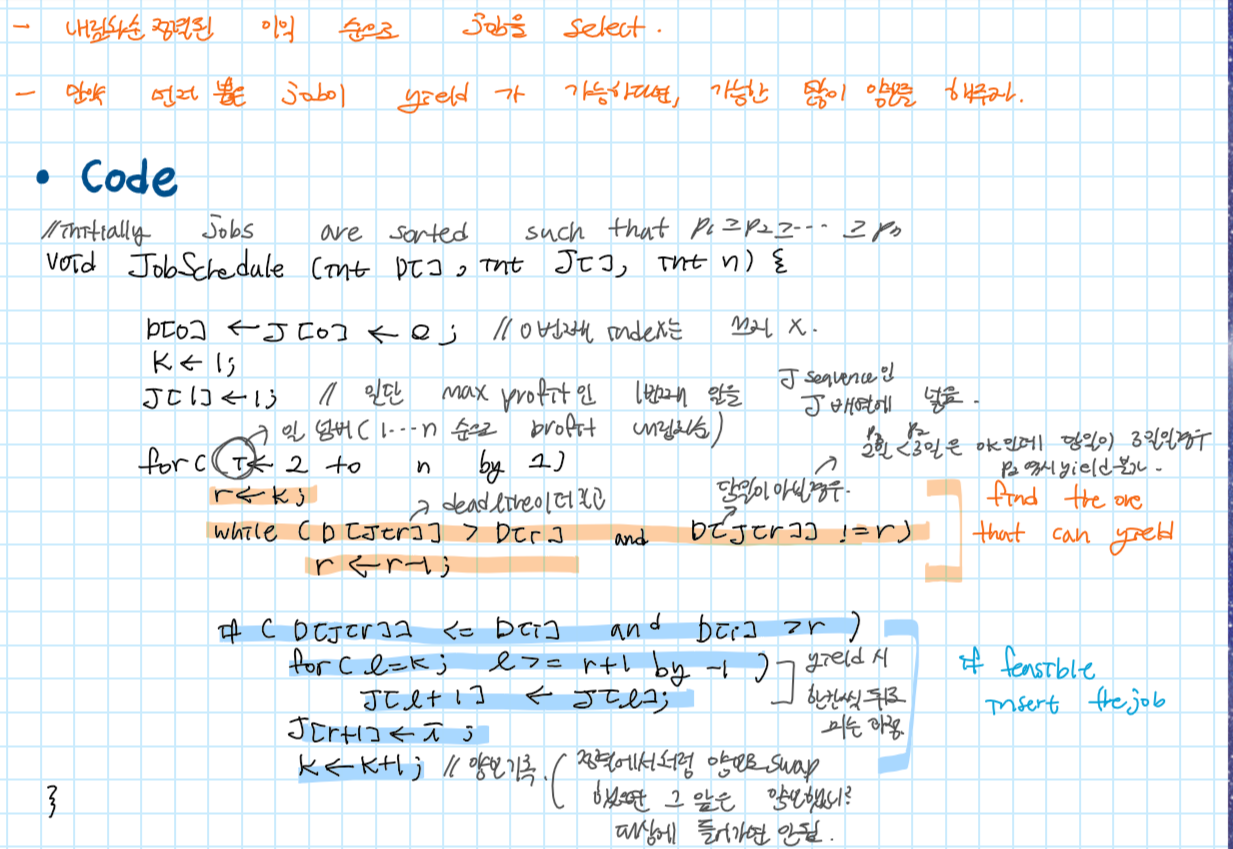 - 내림차순 정렬된 이익 순으로 job을 select.
- 만약 먼저 뽑은 job이 yield가 가능하다면, 가능한 많이 양보를 해주자.
• Code
//Initially jobs are sorted such that P₁≥P₂≥··· ≥Pₙ
void JobSchedule (int D[], int J[], int n) {
D[0] ← J[0] ← 0; // 0번째 index는 쓰지 X.
k ← 1;
J[1] ← 1; // 일단 max profit인 1번째 일을 J sequence인 J 배열에 넣음.
일 넘버(1···n 순으로 profit 내림차순)
for( i ← 2 to n by 1)
P₂ 역시 yield 불가.
r ← k;
deadline이 더 크고
당일이 아닌경우.
while ( D[J[r]] > D[i] and D[J[r]] != r)
r ← r-1;
find the one
that can yield
if ( D[J[r]] <= D[i] and D[i] > r )
for( l=k; l >= r+1 by -1 )
J[l+1] ← J[l];
yield 시
한칸씩 뒤로
미는 과정.
J[r+1] ← i;
k ← k+1; // 양보기록.
정렬에서처럼 양보로 swap
했으면 그 앞은
대상에 들어가면 안됨.
if feasible
insert the job
}